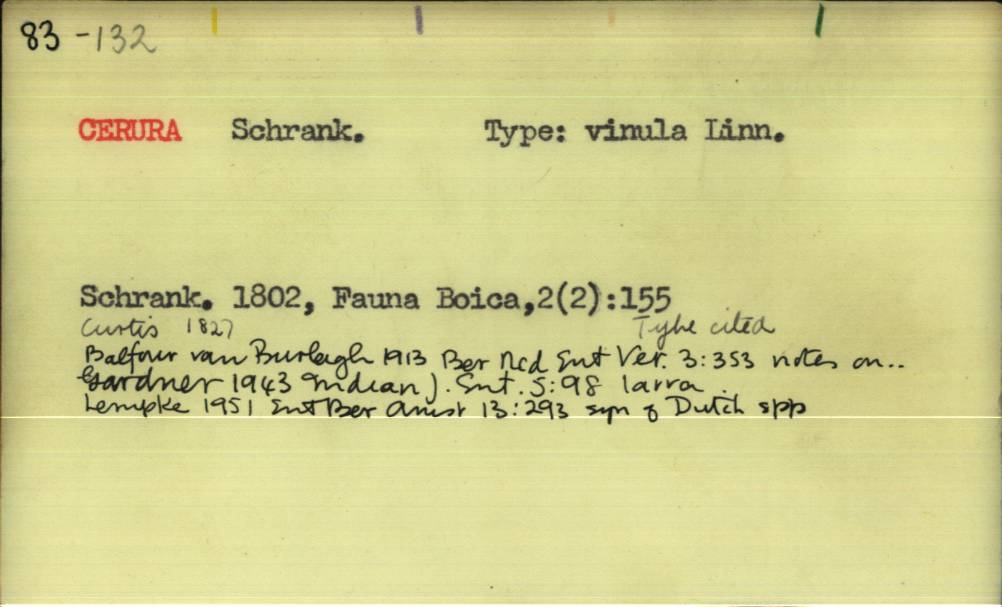 83 -132
CERURA Schrank. Type: vinula Linn.
Schrank. 1802, Fauna Boica,2(2):155
Curtis 1827 Type cited
Balfour van Burleigh 1913 Ber Ned Ent Ver. 3:353 notes on..
Gardner 1943 Indian J. Ent. 5:98 larva.
Lempke 1951 Ent Ber Amst 13:293 syn of Dutch spp